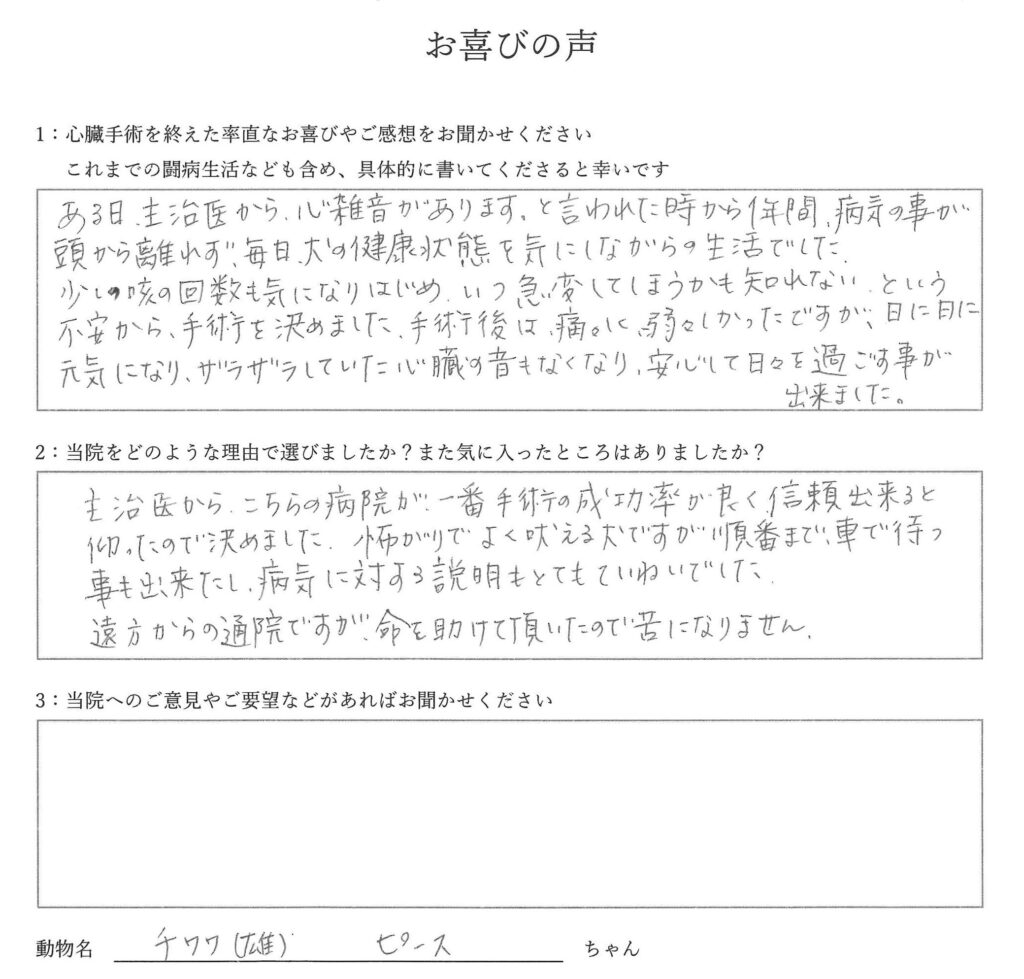 お喜びの声
1：心臓手術を終えた率直なお喜びやご感想をお聞かせください
これまでの闘病生活なども含め、具体的に書いてくださると幸いです
ある日、主治医から、心雑音があります。と言われた時から1年間、病気の事が
頭から離れず、毎日、犬の健康状態を気にしながらの生活でした。
少しの咳の回数も気になりはじめ、いつ急変してしまうかも知れない、という
不安から、手術を決めました。手術後は、痛々しく、弱々しかったですが、日に日に
元気になり、ザラザラしていた心臓の音もなくなり、安心して日々を過ごす事が
出来ました。
2：当院をどのような理由で選びましたか？また気に入ったところはありましたか？
主治医から、こちらの病院が、一番手術の成功率が良く、信頼出来ると
仰ったので決めました。怖がりでよく吠える犬ですが順番まで、車で待つ
事も出来たし、病気に対する説明もとてもていねいでした。
遠方からの通院ですが、命を助けて頂いたので苦になりません。
3：当院へのご意見やご要望などがあればお聞かせください
動物名 チワワ(雄) ピース ちゃん